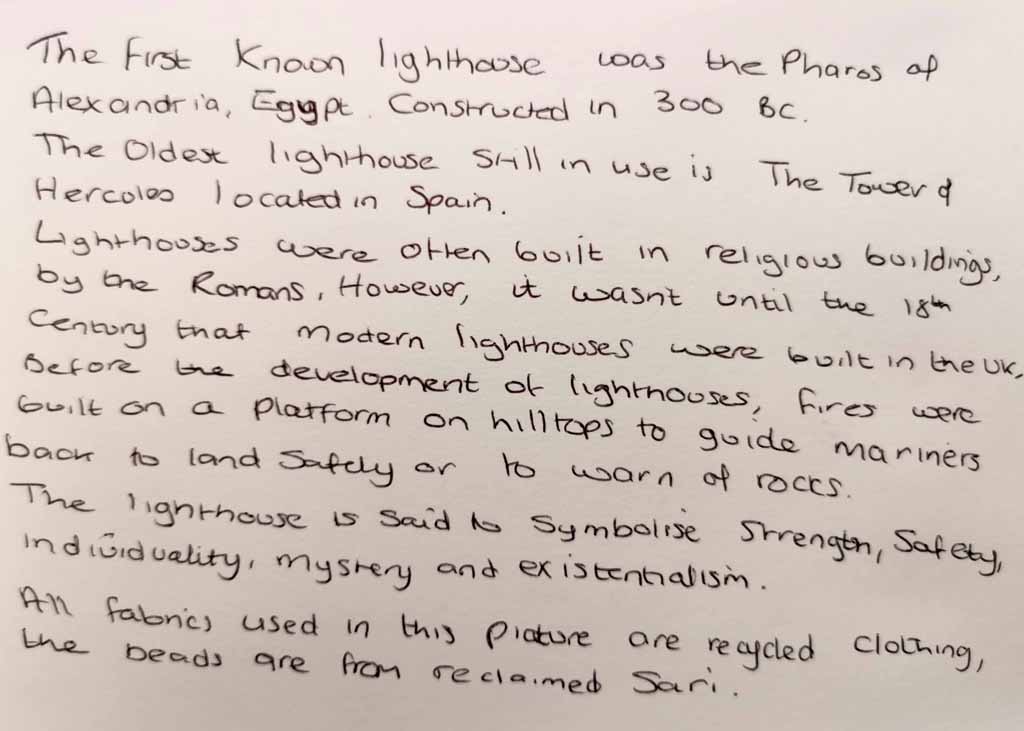 The first Known lighthouse was the Pharos of
Alexandria, Egypt. Constructed in 300 BC.
The Oldest lighthouse still in use is The Tower of
Hercules located in Spain.
Lighthouses were often built in religious buildings,
by the Romans. However, it wasnt until the 18th
Century that modern lighthouses were built in the UK,
Before the development of lighthouses, fires were
built on a platform on hilltops to guide mariners
back to land Safely or to warn of rocks.
The lighthouse is said to symbolise Strength, Safety,
individuality, mystery and existentialism.
All fabrics used in this picture are recycled clothing,
the beads are from reclaimed Sari.